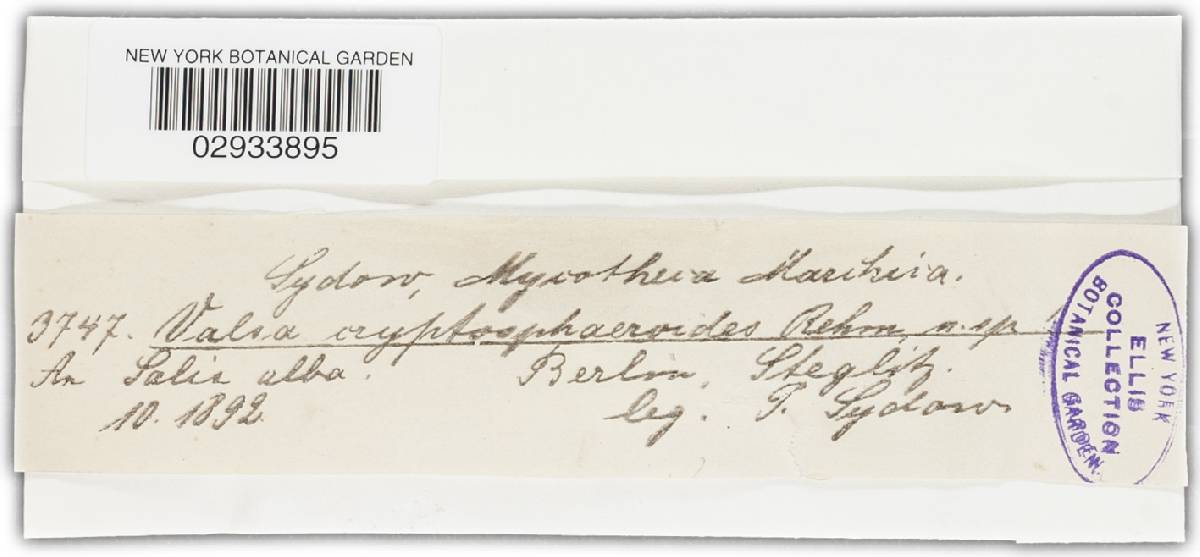 NEW YORK BOTANICAL GARDEN
02933895
Sydow, Mycotheca Marchica.
3747. Valsa cryptosphaeroides Rehm, n. sp.
An Salix alba. Berlin, Steglitz.
10. 1892. leg. P. Sydow
NEW YORK
ELLIS
COLLECTION
BOTANICAL GARDEN